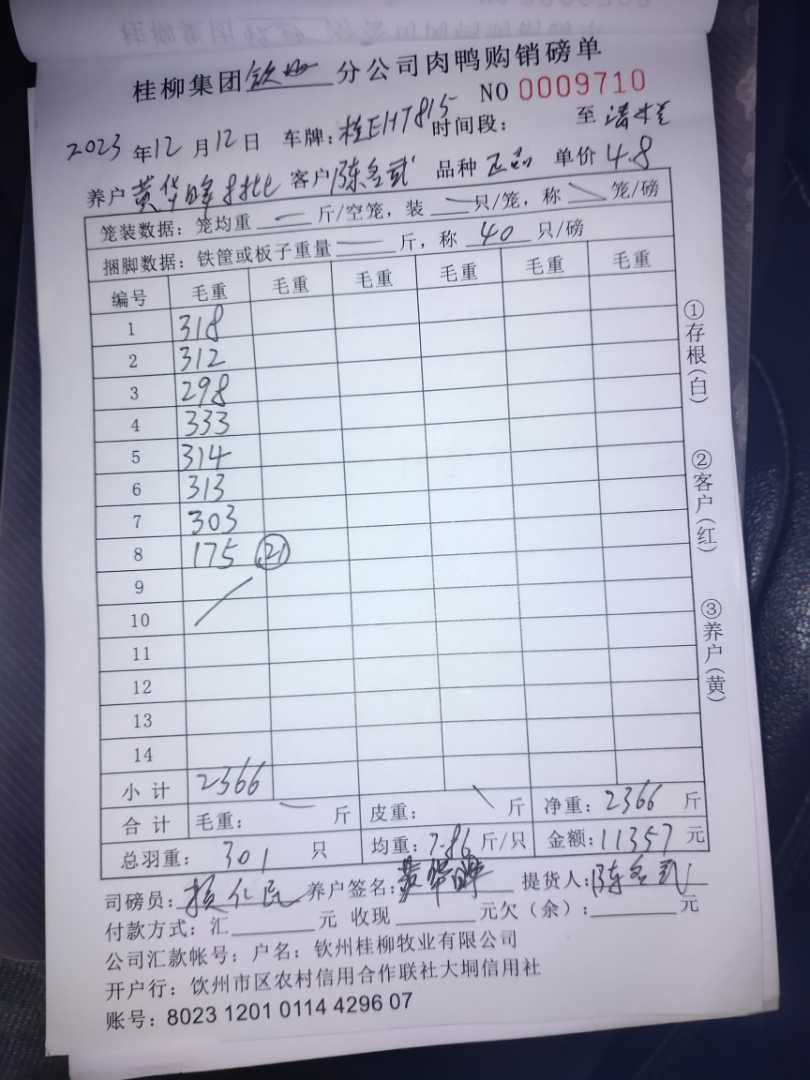 桂柳集团钦州分公司肉鸭购销磅单
NO 0009710
2023年12月12日 车牌：桂EHT815 时间段： 至 清栏
养户 黄华晖 客户 陈 武 品种 正品 单价 4.8
笼装数据：笼均重 — 斤/空笼，装 — 只/笼，称 \ 笼/磅
捆脚数据：铁筐或板子重量 — 斤，称 40 只/磅
编号 毛重 毛重 毛重 毛重 毛重 毛重
1 318
2 312
3 298
4 333
5 314
6 313
7 303
8 175 21
9
10
11
12
13
14
小计 2366
合计 毛重：— 斤 皮重：\ 斤 净重：2366 斤
总羽重：301 只 均重：7.86 斤/只 金额：11357 元
司磅员： 养户签名：黄华晖 提货人：陈 武
付款方式：汇 元 收现 元欠（余）： 元
公司汇款帐号：户名：钦州桂柳牧业有限公司
开户行：饮州市区农村信用合作联社大垌信用社
账号：8023 1201 0114 4296 07
①存根（白）
②客户（红）
③养户（黄）